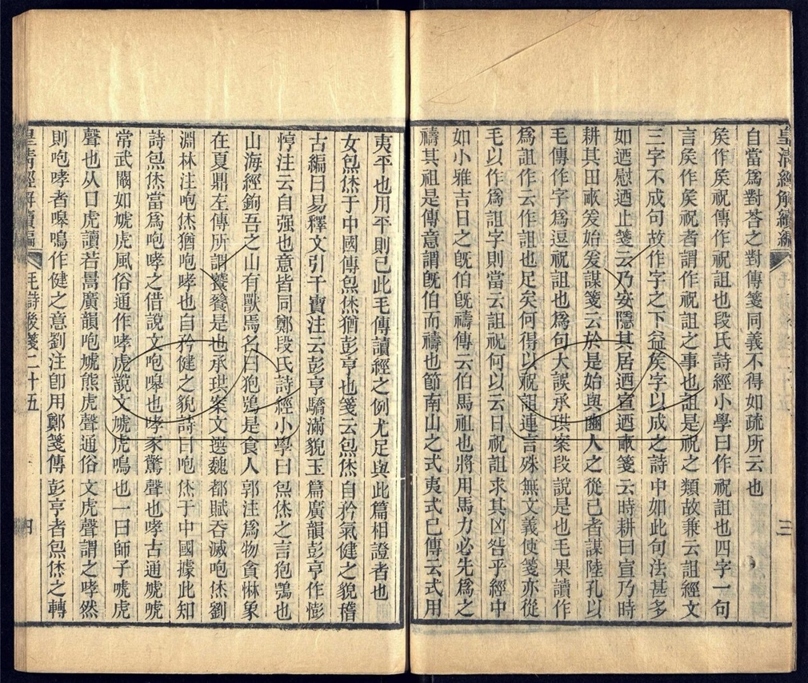 皇清經解續編
三
自當爲對荅之對傳箋同義不得如疏所云也
矦作矦祝傳作祝詛也段氏詩經小學曰作祝詛也四字一句
言矦作矦祝者謂作祝詛之事也詛是祝之類故兼云詛經文
三字不成句故作字之下益矦字以成之詩中如此句法甚多
如迺慰迺止箋云乃安隱其居迺宣迺畝箋云時耕曰宣乃時
耕其田畝爰始爰謀箋云於是始與豳人之從己者謀陸孔以
毛傳作字爲逗祝詛也爲句大誤承珙案段說是也毛果讀作
爲詛作云作詛也足矣何得以祝詛連言殊無文義使箋亦從
毛以作爲詛字則當云詛祝何以云日祝詛求其凶咎乎經中
如小雅吉日之旣伯旣禱傳云伯馬祖也將用馬力必先爲之
禱其祖是傳意謂旣伯而禱也節南山之式夷式已傳云式用
夷平也用平則已此毛傳讀經之例尤足與此篇相證者也
女炰烋于中國傳炰烋猶彭亨也箋云炰烋自矜氣健之貌稽
古編曰易釋文引干寶注云彭亨驕滿貌玉篇廣韻彭亨作憉
悙注云自强也意皆同鄭段氏詩經小學曰炰烋之言狍鴞也
山海經鉤吾之山有獸焉名曰狍鴞是食人郭注爲物貪惏象
在夏鼎左傳所謂饕餮是也承珙案文選魏都賦吞滅咆烋劉
淵林注咆烋猶咆哮也自矜健之貌詩曰咆烋于中國據此知
詩炰烋當爲咆哮之借說文咆嘷也哮豕驚聲也哮古通虓唬
常武闞如虓虎風俗通作哮虎說文虓虎鳴也一曰師子唬虎
聲也从口虎讀若暠廣韻咆虓熊虎聲通俗文虎聲謂之哮然
則咆哮者嘷鳴作健之意劉注卽用鄭箋傳彭亨者炰烋之轉
皇清經解續編
毛詩後箋二十五
四